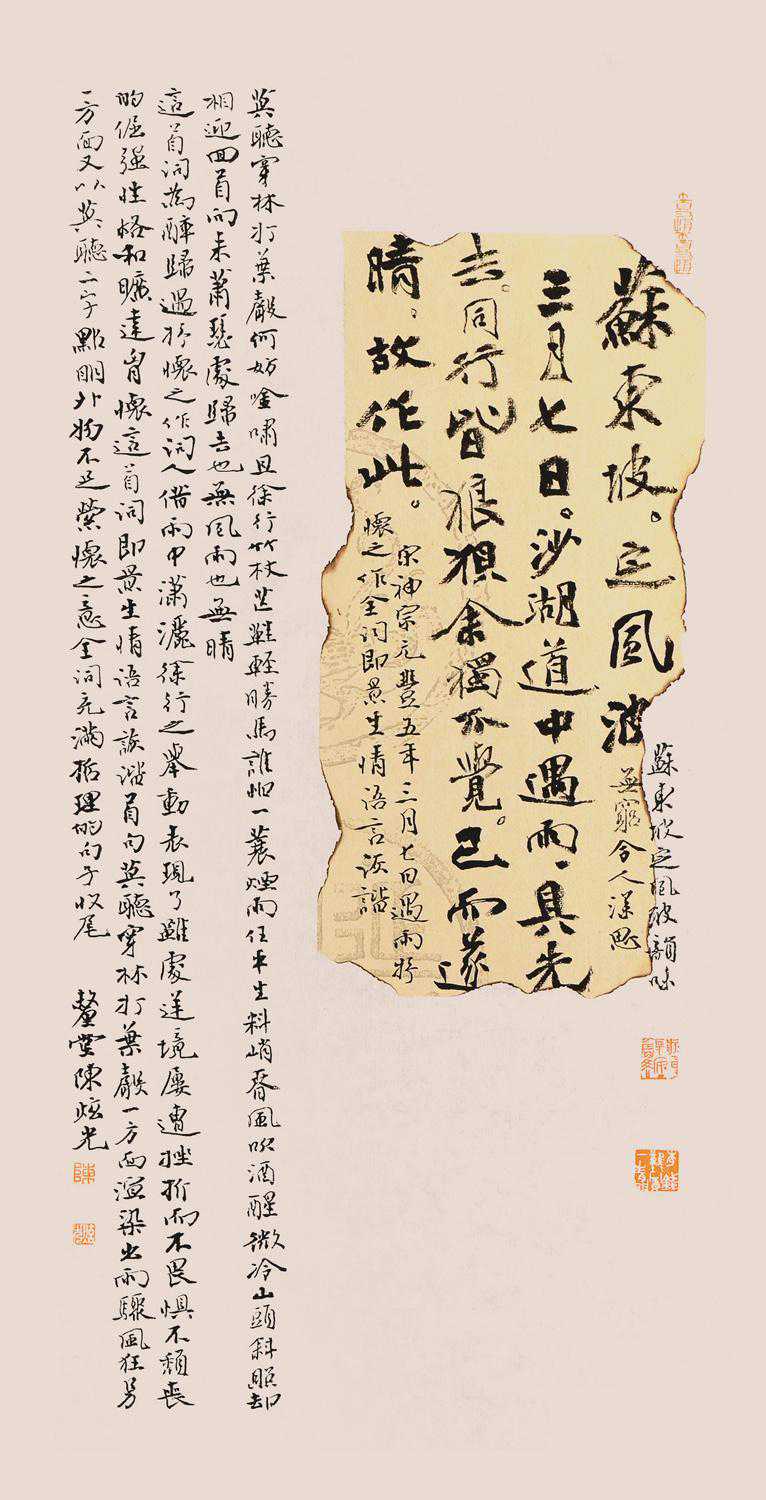 蘇東坡。定風波
蘇東坡定風波韻味
無窮令人深思
三月七日。沙湖道中遇雨、具先
去。同行皆狼狽余獨不覺。已而遂
晴。故作此。
宋神宗元豐五年三月七日遇雨抒
懷之作全詞即景生情語言詼諧
莫聽穿林打葉聲何妨唫嘯且徐行竹杖芒鞋輕勝馬誰怕一蓑煙雨任平生料峭春風吹酒醒微冷山頭斜照却
相迎回首向来蕭瑟處歸去也無風雨也無晴
這首詞為醉歸遇抒懷之作詞人借雨中瀟灑徐行之舉動表現了雖處逆境屢遭挫折而不畏懼不頹喪
的倔强性格和曠達胷懷這首詞即景生情語言詼諧首句莫聽穿林打葉聲一方面渲染出雨驟風狂另
一方面又以莫聽二字點明外物不足縈懷之意全詞充滿哲理的句子收尾
堂陳炫光
陳